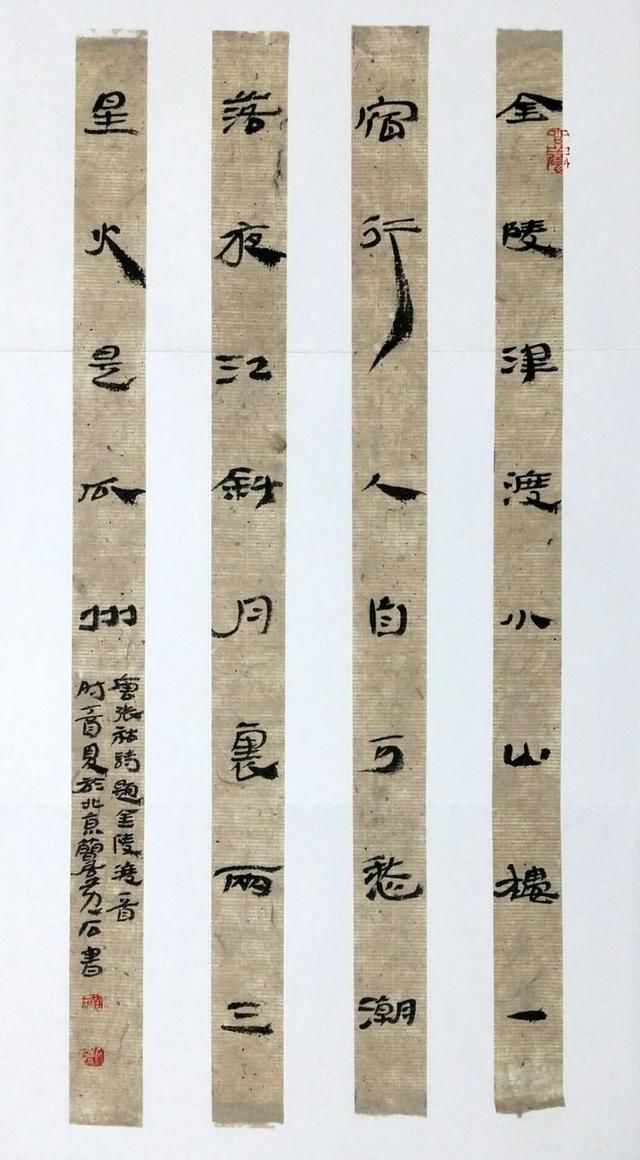 金陵津渡小山樓一
宿行人自可愁潮
落夜江斜月裏兩三
星火是瓜州
唐張祜詩題金陵渡一首
时丁酉夏於北京石書